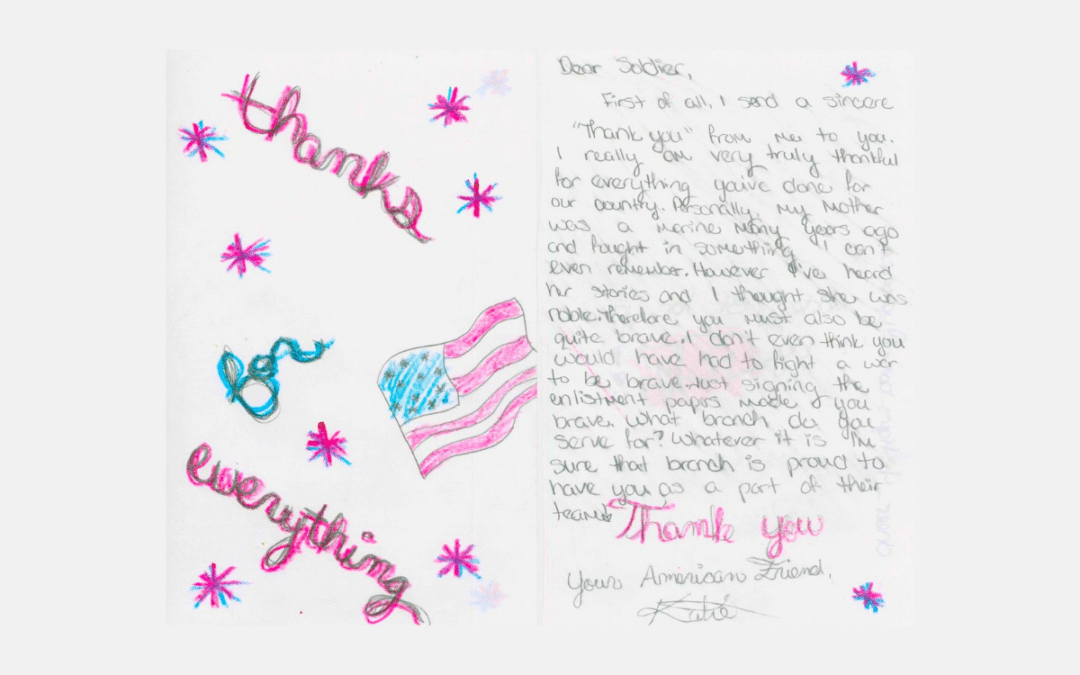 thanks
for
everything
Dear Soldier,
First of all, I send a sincere
"Thank you" from me to you.
I really am very truly thankful
for everything you've done for
our country. Personally, my Mother
was a Marine Many years ago
and fought in something I can't
even remember. However I've heard
her stories and I thought she was
noble. Therefore you must also be
quite brave. I don't even think you
would have had to fight a war
to be brave. Just signing the
enlistment papers made you
brave. What branch do you
serve for? Whatever it is I'm
sure that branch is proud to
have you as a part of their
team!
Thank you
Your American Friend,
Katie